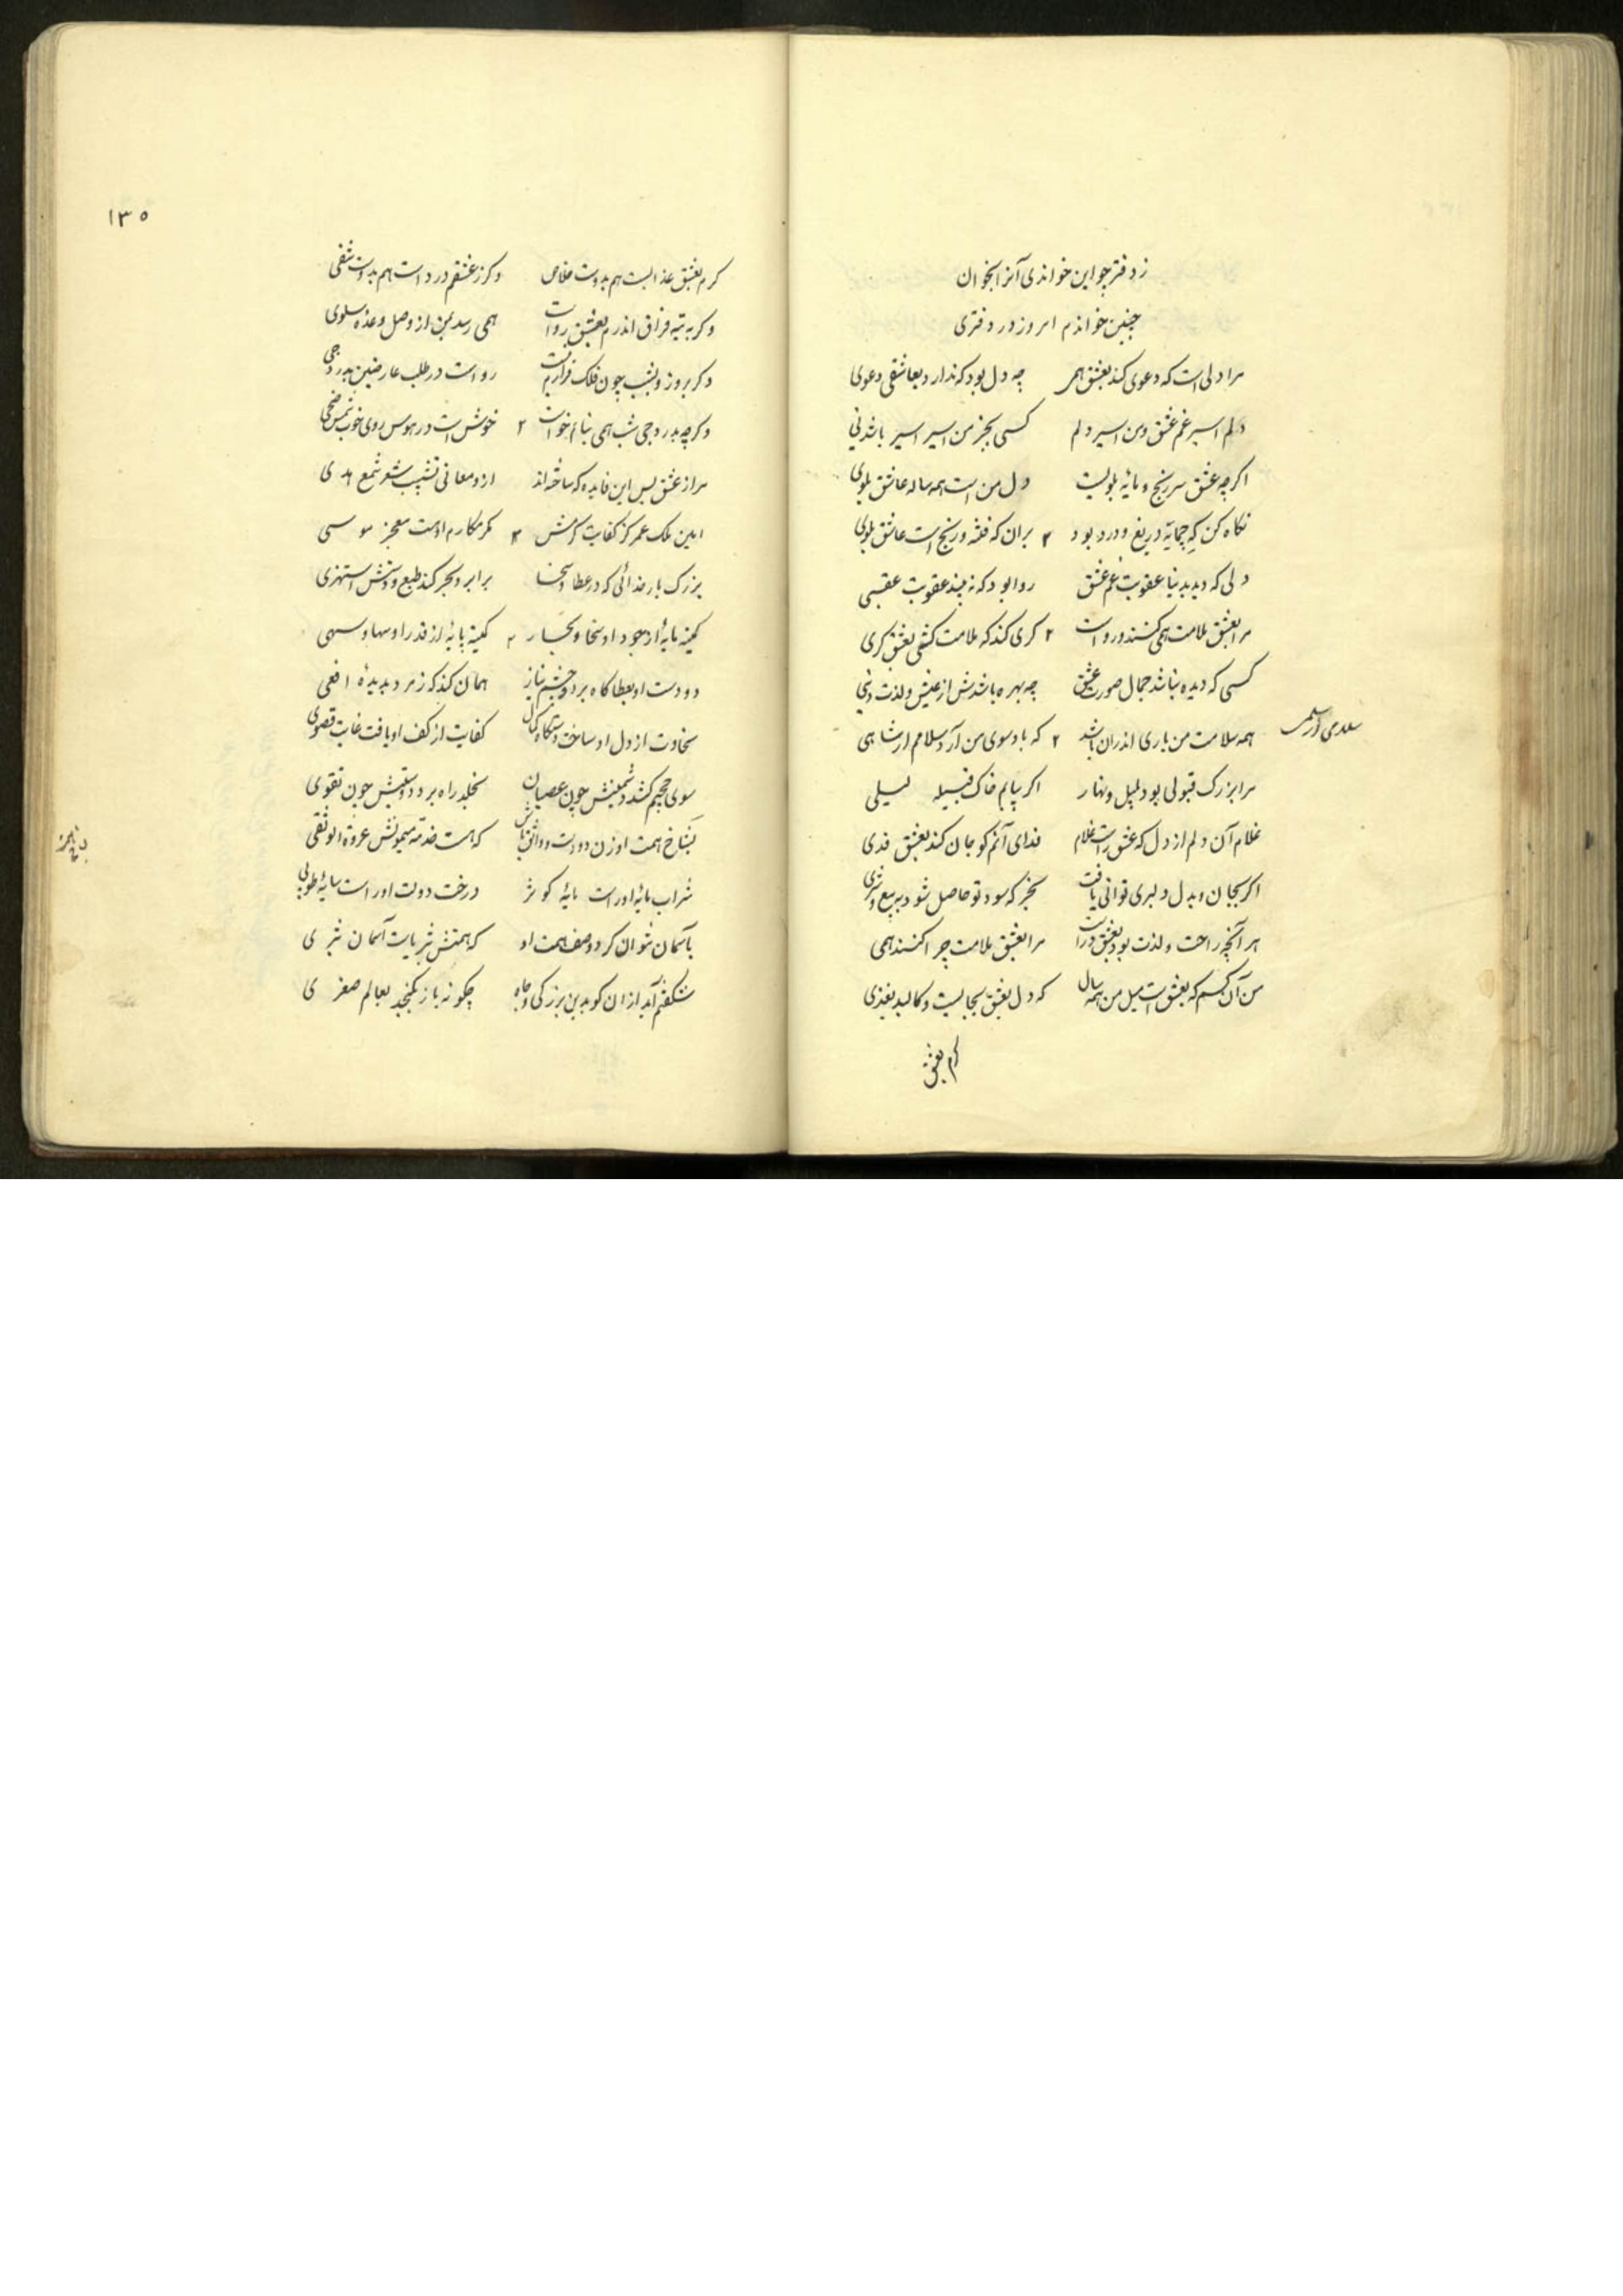 ز دفتر چو این خواندی آنرا بخوان
چنین خواندم امروز در دفتری
مرا دلی است که دعوی کند بعشق همی چه دل بود که ندارد بعاشقی دعوی
دلم اسیر غم عشق و من اسیر دلم کسی بجز من اسیر اسیر باشد نی
اگرچه عشق سر رنج و مایهٔ بلویست دل من است همه ساله عاشق بلوی
نگاه کن که چه مایه دریغ و درد بود ۲ بران که فتنه و رنج است عاشق بلوی
دلی که دید بدنیا عقوبت غم عشق روا بود که نبیند عقوبت عقبی
مرا بعشق ملامت همی کنند و رواست ۲ کری کند که ملامت کشی بعشق کری
کسی که دیده نباشد جمال صورت عشق چه بهره باشدش از عیش و لذت دنیی
همه سلامت من باری اندران باشد ۲ که باد سوی من آرد سلام
مرا بزرگ قبولی بود بلیل و نهار اگر بیابم خاک قبیله لیلی
غلام آن دلم از دل که عشق راست غلام فدای آنم کو جان کند بعشق فدی
اگر بجان و بدل دلبری توانی یافت بخر که سود تو حاصل شود ببیع و شری
هر آنچه راحت و لذت بود بعشق در است مرا بعشق ملامت چرا کنند همی
من آن کسم که بعشق است میل من همه سال که دل بعشق بجالیت و کالبد بغذی
کرم بعشق
۱۳۵
کرم بعشق عذابست هم بدوست خلاص وگر ز عشقم درد است هم بدوست شفی
وگر به تیه فراق اندرم بعشق رواست همی رسد بمن از وصل وعده سلوی
وگر بروز و بشب چون فلک قرارم نیست رواست در طلب عارضین بدر دجی
وگرچه بدر دجی شب همی نیارم خواست ۲ خوش است در هوس روی خوب شمس ضحی
مرا ز عشق بس این فایده که ساخته‌اند ازو معانی تشبیب شعر شمع هدی
امین ملک عمر کز کفایت کرمش ۲ مکر مکارم اوست معجز موسی
بزرگ بار خدائی که در عطا و سخا برابر و بحر کند طبع و دستش استهزی
کمینه مایهٔ از جود او سخا و بحار ۲ کمینه پایهٔ از قدر او سها و سهی
دو دست او بعطا گاه برد و چشم نیاز همان کند که زمرد بدیدهٔ افعی
سخاوت از دل او ساخت دستگاه کمال کفایت از کف او یافت غایت قصوی
سوی جحیم کشد دشمنیش چون عصیان بخلد راه برد دوستیش چون تقوی
بشاخ همت او زن دو دست و واثق باش که هست خدمت میمونش عروة الوثقی
شراب مایهٔ او راست مایهٔ کوثر درخت دولت او راست سایهٔ طوبی
بآسمان نتوان کرد وصف همت او که همتش بثریاست آسمان ثری
شگفتم آید ازان کو بدین بزرگی و جاه چگونه باز بگنجد بعالم صغری